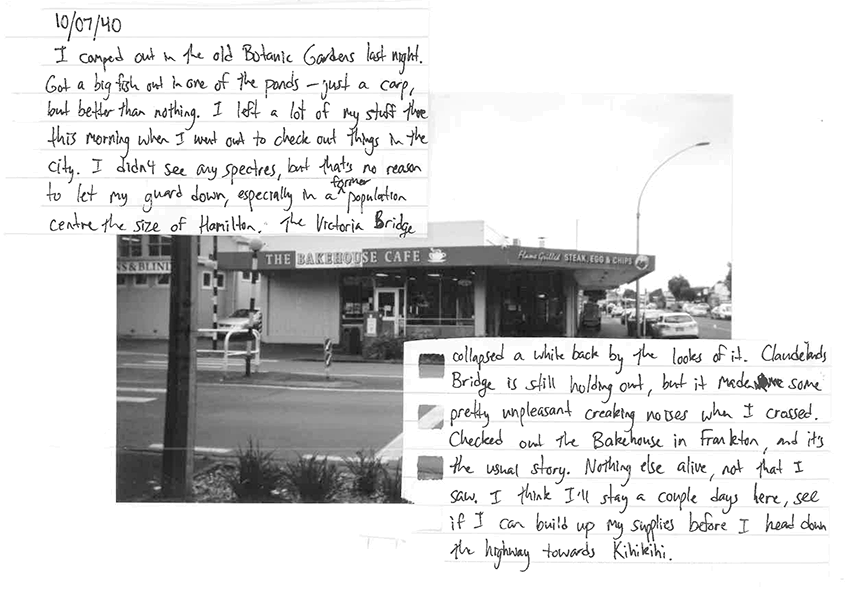 10/07/40
I camped out in the old Botanic Gardens last night.
Got a big fish out in one of the ponds – just a carp,
but better than nothing. I left a lot of my stuff there
this morning when I went out to check out things in the
city. I didn't see any spectres, but that's no reason
to let my guard down, especially in a former population
centre the size of Hamilton. The Victoria Bridge
NS & BLIND
THE BAKEHOUSE CAFE
Flame Grilled STEAK, EGG & CHIPS
collapsed a while back by the looks of it. Claudelands
Bridge is still holding out, but it made some
pretty unpleasant creaking noises when I crossed.
Checked out the Bakehouse in Frankton, and it's
the usual story. Nothing else alive, not that I
saw. I think I'll stay a couple days here, see
if I can build up my supplies before I head down
the highway towards Kihikihi.